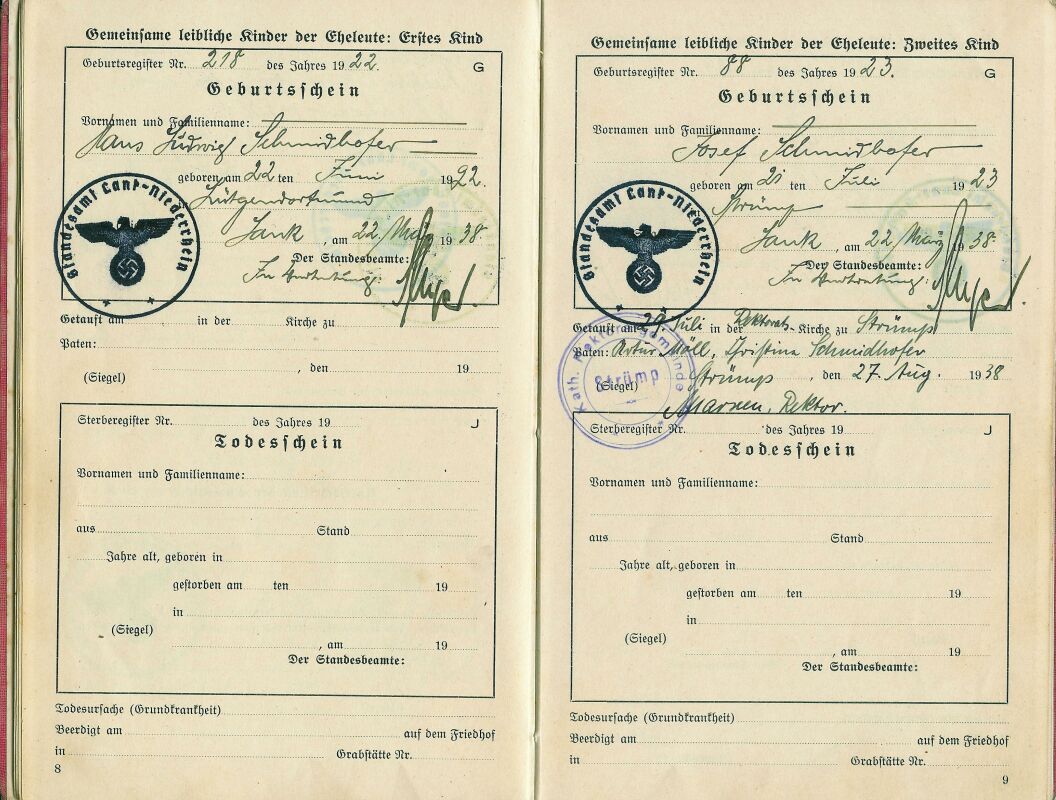 Gemeinsame leibliche Kinder der Eheleute: Erstes Kind
Geburtsregister Nr. 218 des Jahres 1922. G
Geburtsschein
Vornamen und Familienname:
Hans Ludwig Schmidhofer
geboren am 22 ten Juni 1922.
Lütgendortmund
Lank, am 22. März 1938
Der Standesbeamte:
In Vertretung:
Standesamt Lank-Niederrhein
Getauft am in der Kirche zu
Paten:
, den 19
(Siegel)
Sterberegister Nr. des Jahres 19 J
Todesschein
Vornamen und Familienname:
aus Stand
Jahre alt, geboren in
gestorben am ten 19
in
(Siegel)
, am 19
Der Standesbeamte:
Todesursache (Grundkrankheit)
Beerdigt am auf dem Friedhof
in Grabstätte Nr.
8
Gemeinsame leibliche Kinder der Eheleute: Zweites Kind
Geburtsregister Nr. 88 des Jahres 1923. G
Geburtsschein
Vornamen und Familienname:
Josef Schmidhofer
geboren am 21 ten Juli 1923
Strümp
Lank, am 22. März 1938.
Der Standesbeamte:
In Vertretung:
Standesamt Lank-Niederrhein
Getauft am 29. Juli in der Rektorats-Kirche zu Strümp
Paten: Artur Möll, Christina Schmidhofer
(Siegel) Strümp, den 27. Aug. 1938
Rektor.
Kath. Rektoratsgemeinde
Strümp
Sterberegister Nr. des Jahres 19 J
Todesschein
Vornamen und Familienname:
aus Stand
Jahre alt, geboren in
gestorben am ten 19
in
(Siegel)
, am 19
Der Standesbeamte:
Todesursache (Grundkrankheit)
Beerdigt am auf dem Friedhof
in Grabstätte Nr.
9